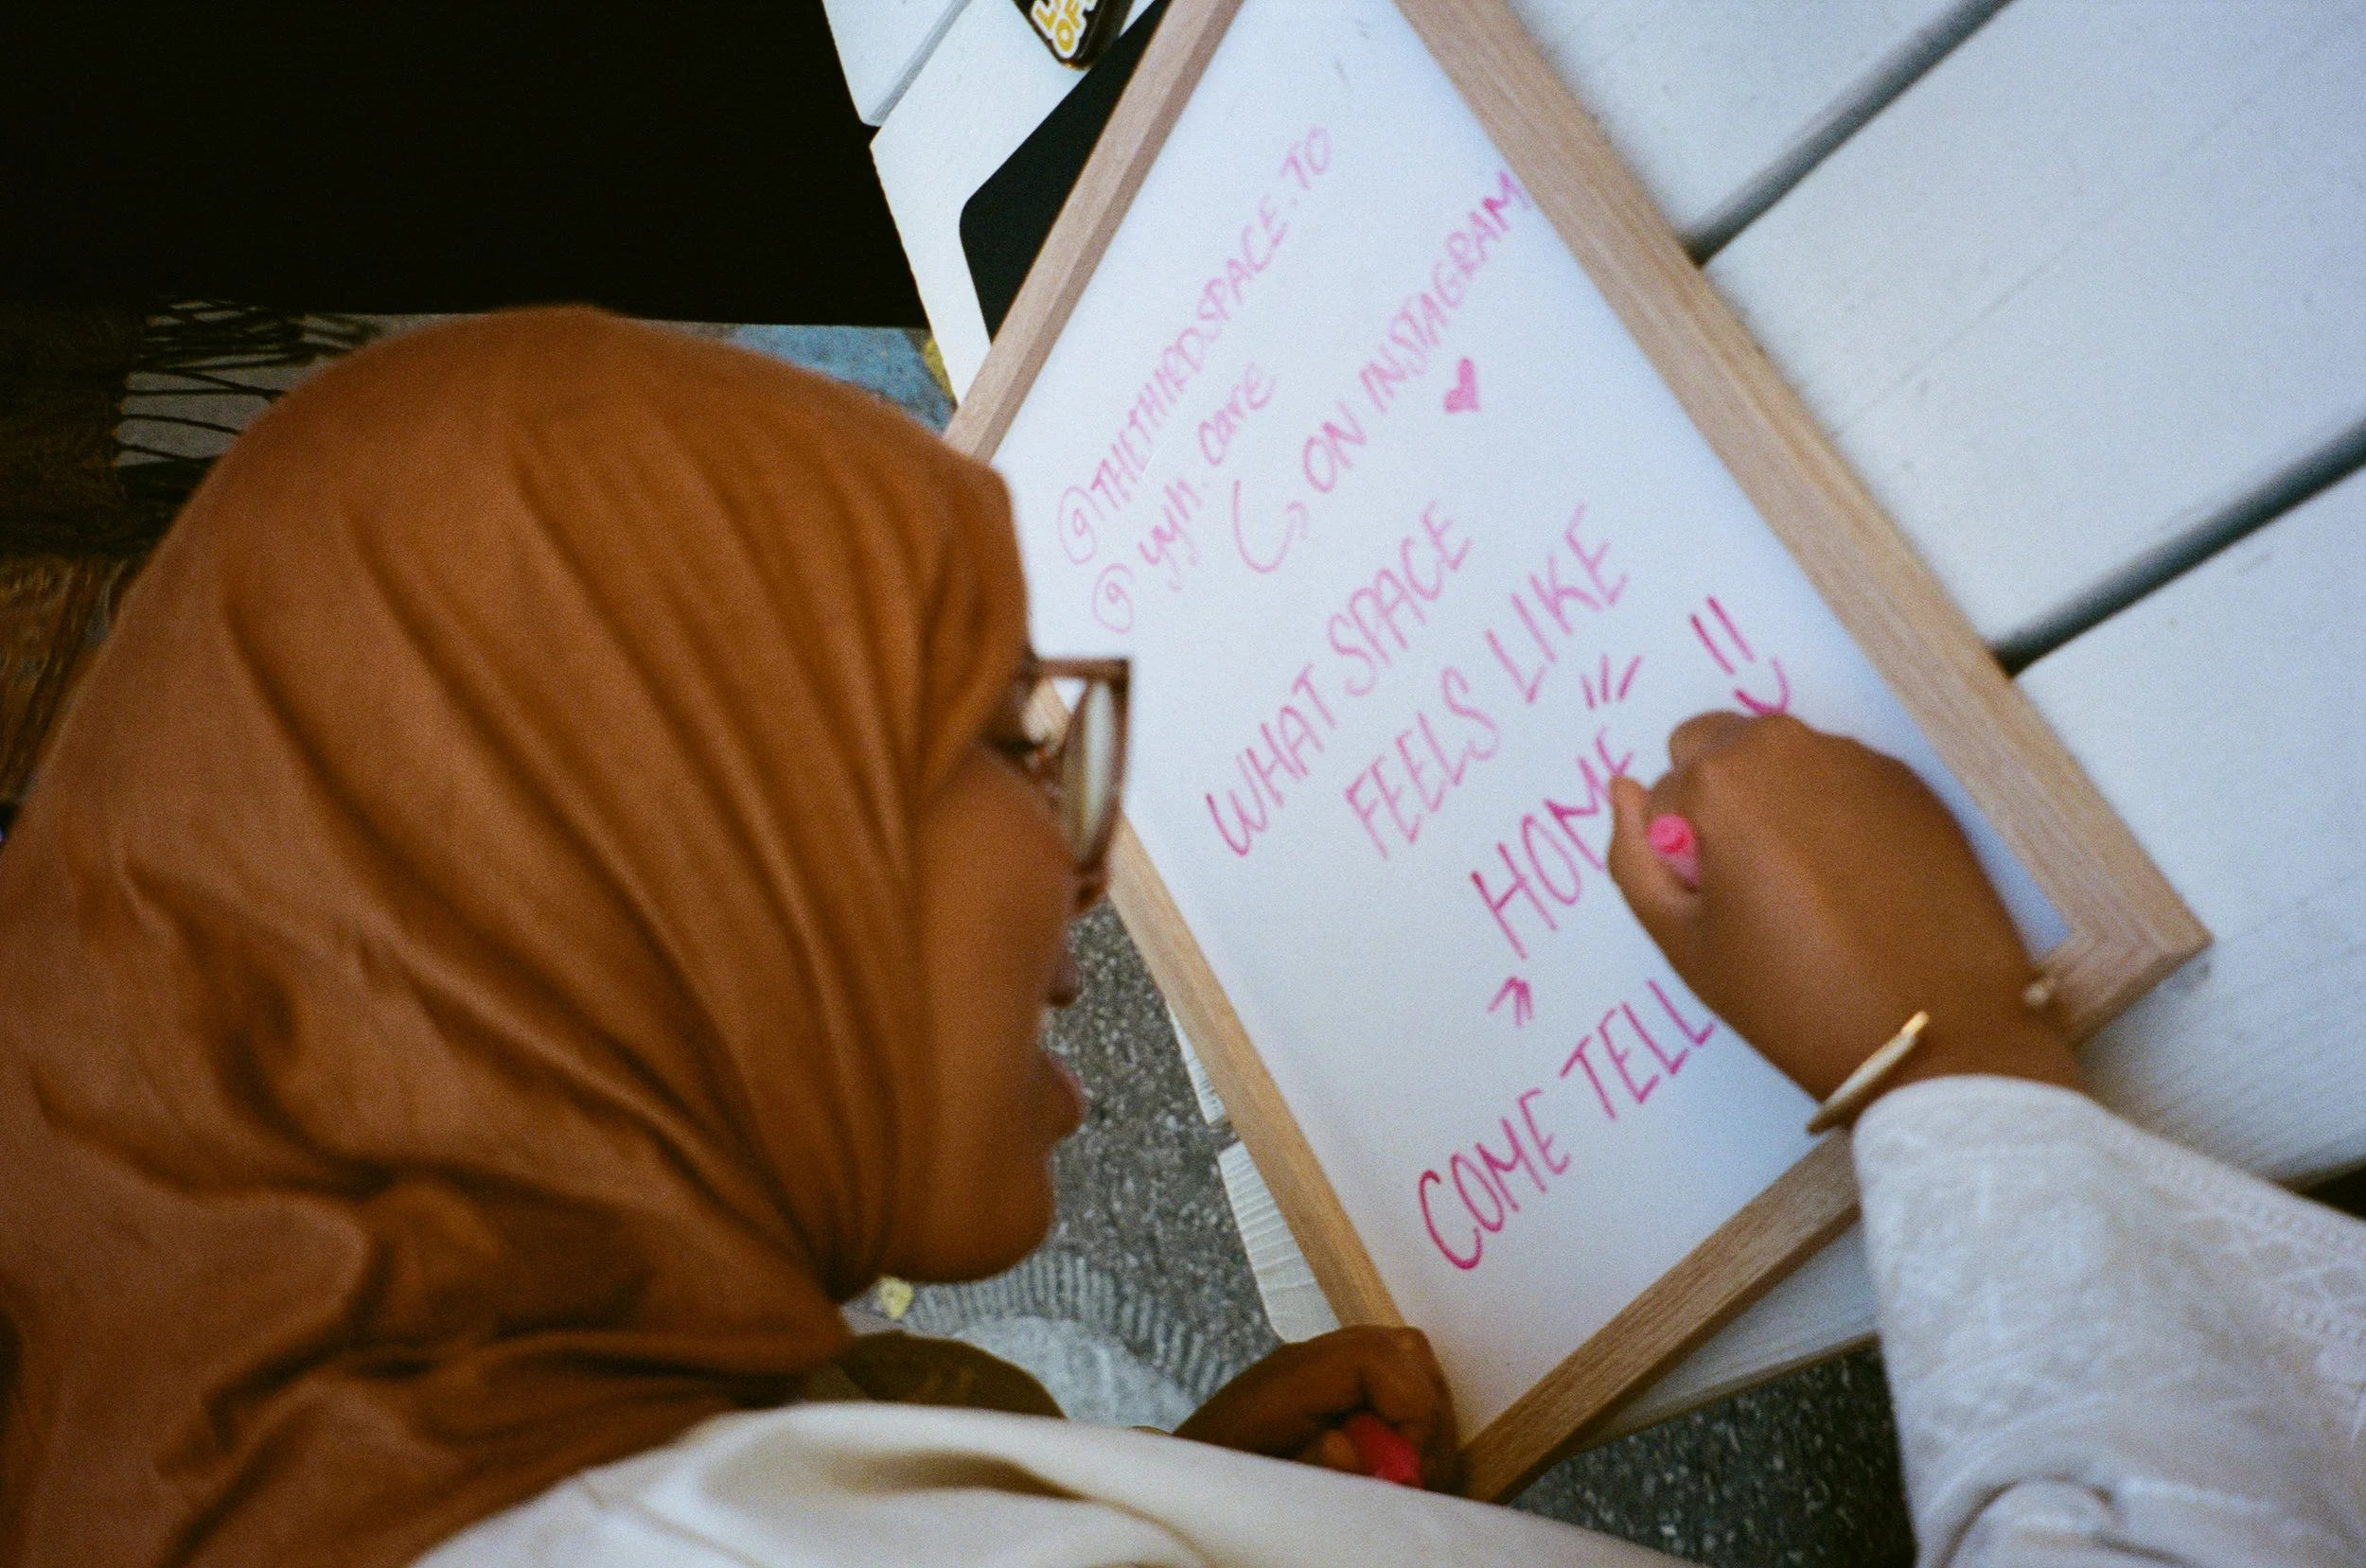 @THETHIRDSPACE.TO
@yyh.care
ON INSTAGRAM
WHAT SPACE
FEELS LIKE
HOME
COME TELL